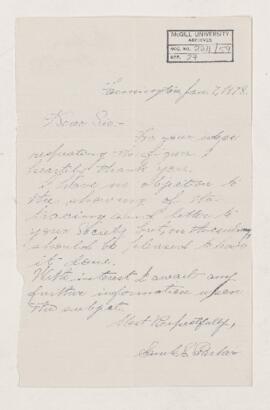 McGILL UNIVERSITY
ARCHIVES
ACC. NO. 2211/59
REF. 29
Farmington Jan. 7, 1878.
Dear Sir:-
For your
respecting the figure I
heartily thank you.
I have no objection to
the showing of the
tracing and letter to
your Society but on the contrary
should be pleased to have
it done.
With interest I await any
further information upon
the subject.
Most Respectfully,